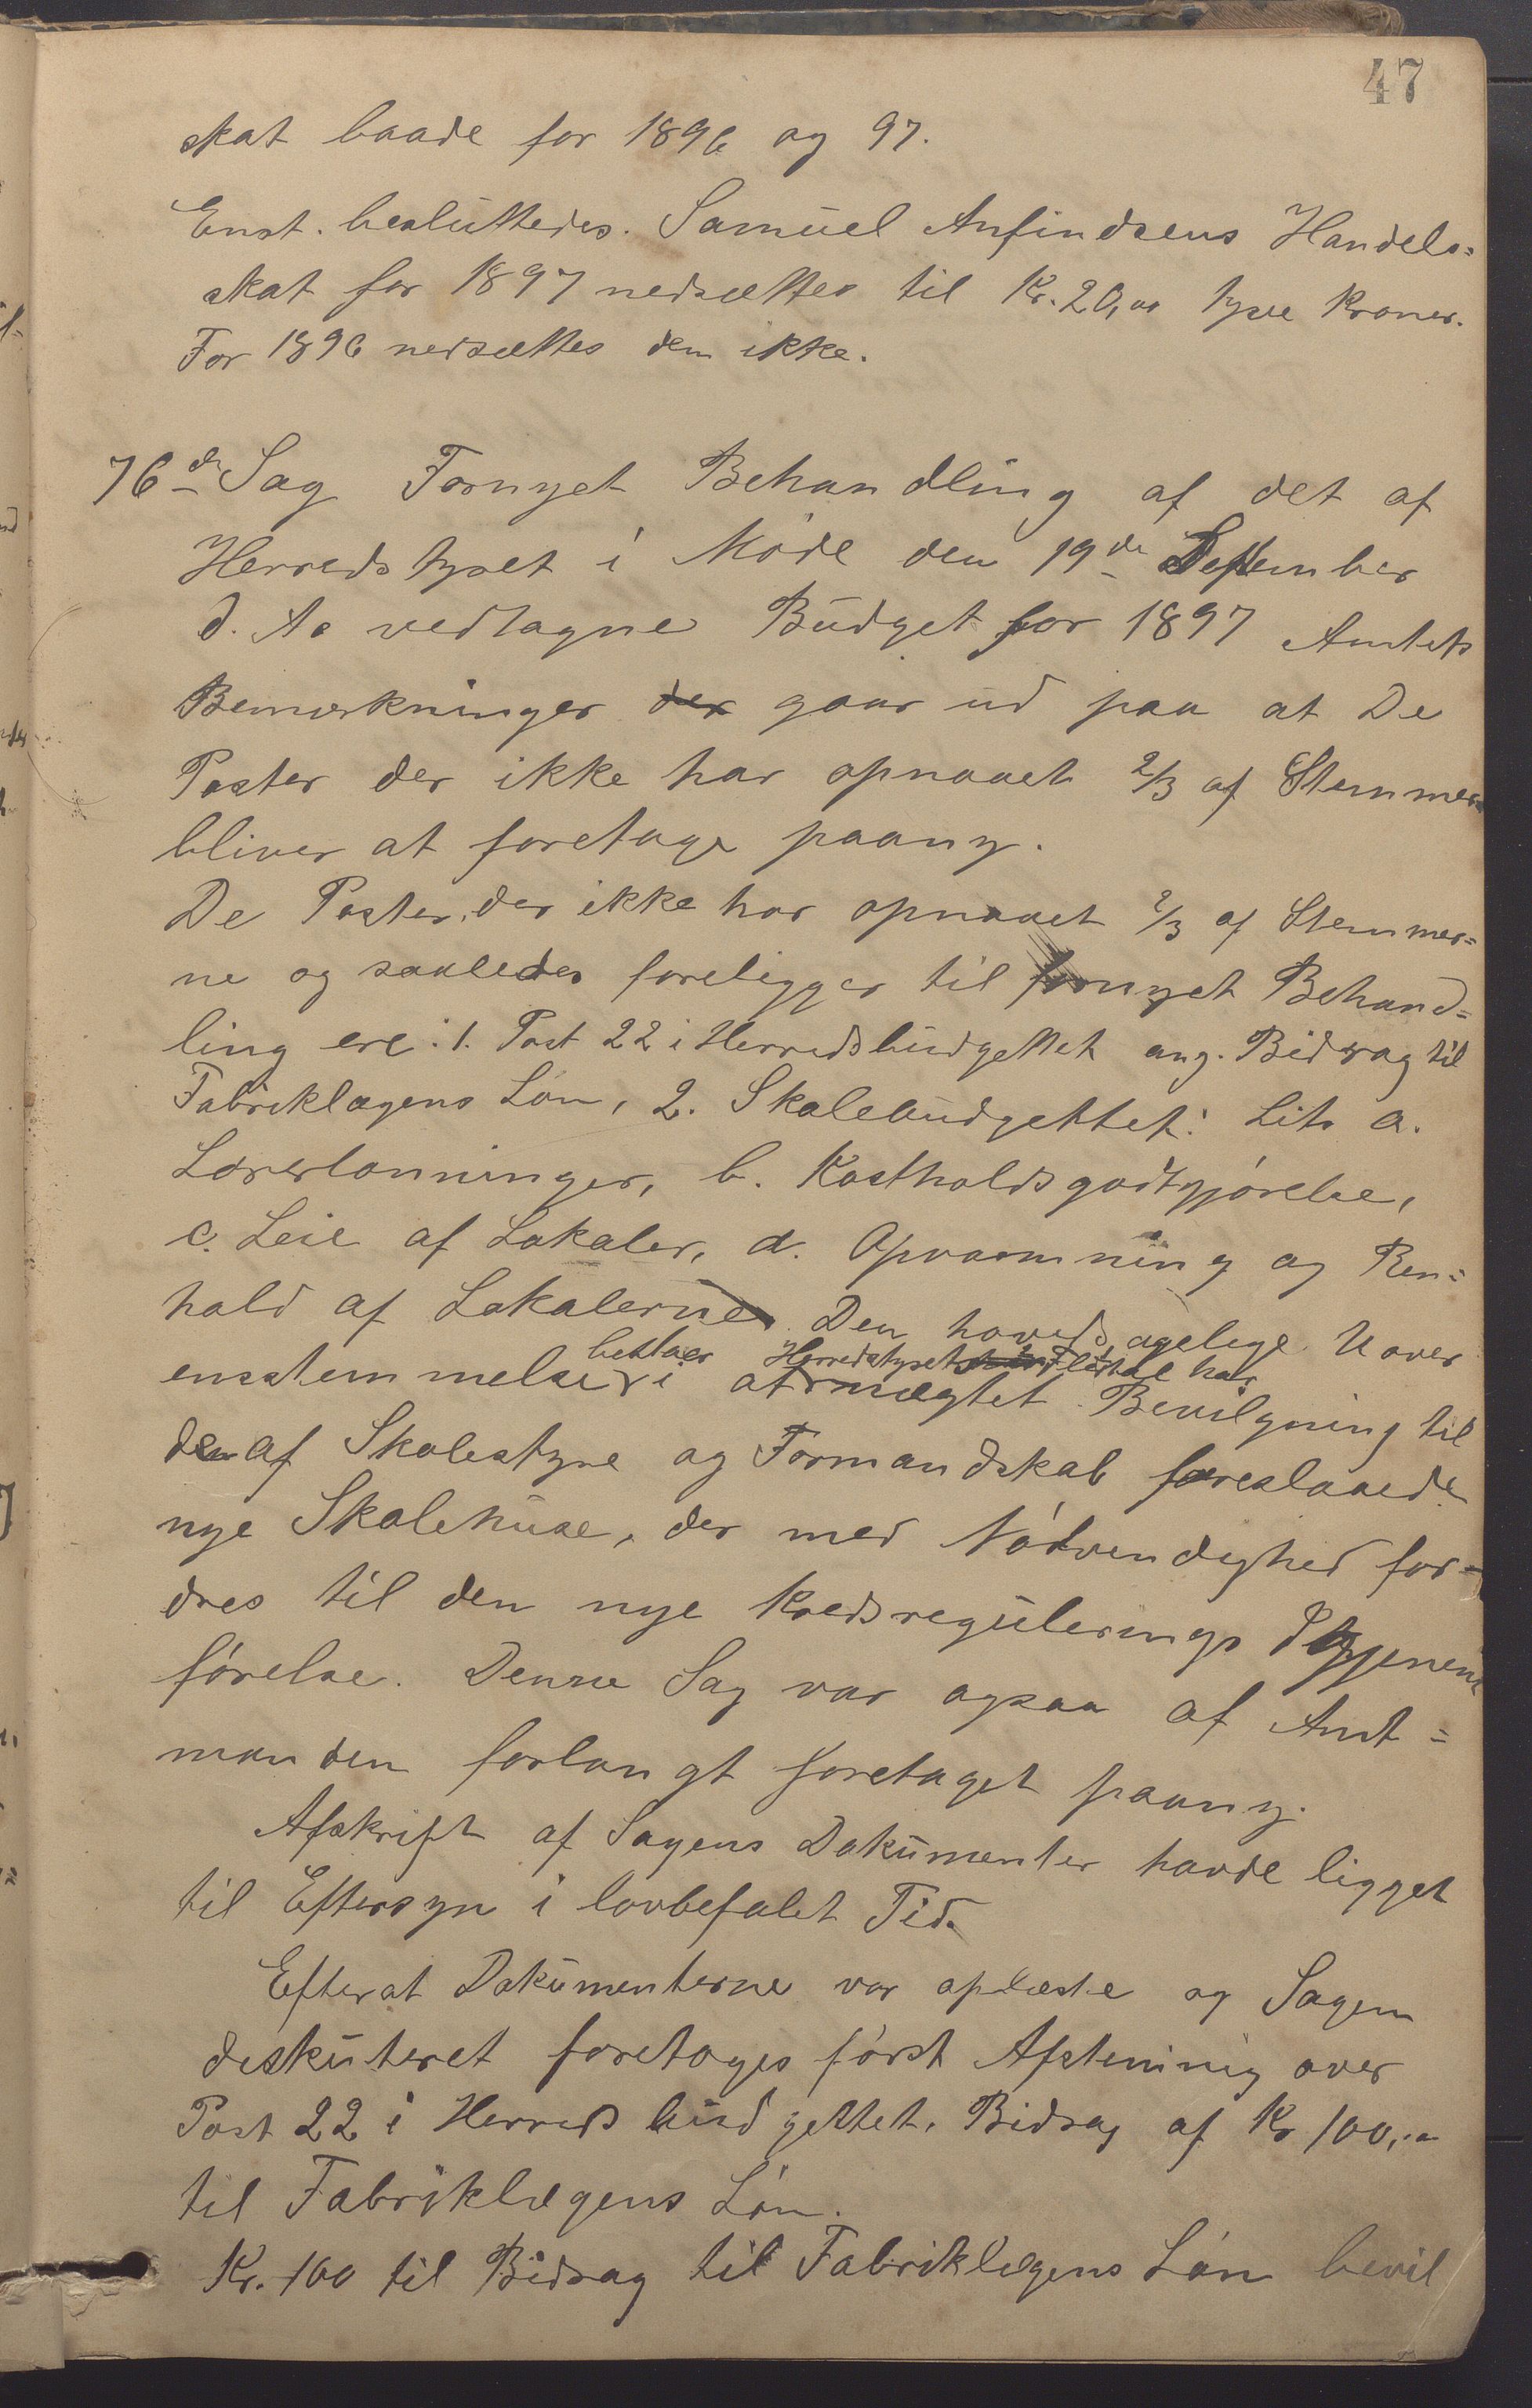 47
skat baade for 1896 og 97.
Enst. besluttedes. Samuel Anfindsens Handels=
skat for 1897 nedsættes til Kr. 20,00 tyve Kroner.
For 1896 nedsættes den ikke.
76de Sag Fornyet Behandling af det af
Herredstyret i Møde den 19de September
d. As vedtagne Budget for 1897 Amtets
Bemærkninger der gaar ud paa at De
Poster der ikke har opnaaet 2/3 af Stemmer
bliver at foretage paany.
De Poster, der ikke har opnaaet 2/3 af Stemmer=
ne og saaledes foreligger til fornyet Behand=
ling ere: 1. Post 22 i Herredsbudgettet ang. Bidrag til
Fabriklægens Løn, 2. Skolebudgettet: Lit. a.
Lærerlønninger, b. Kostholdsgodtgjørelse,
c. Leie af Lokaler, d. Opvarmning og Ren=
hold af Lokalerne. Den hovedsagelige Uover
bestaar Herredstyrets Flertal har
ensstemmelse i at nægtet Bevilgning til
den af Skolestyre og Formandskab foreslaaede
nye Skolehuse, der med Nødvendighed for=
dres til den nye Kredsregulerings Igjennem
førelse. Denne Sag var ogsaa af Amt=
manden forlangt foretaget paany.
Afskrift af Sagens Dokumenter havde ligget
til Eftersyn i lovbefalet Tid.
Efterat Dokumenterne var oplæste og Sagen
diskuteret foretoges først Afstemnig over
Post 22 i Herredsbudgettet. Bidrag af Kr 100,00
til Fabriklægens Løn.
Kr. 100 til Bidrag til Fabriklægens Løn bevil